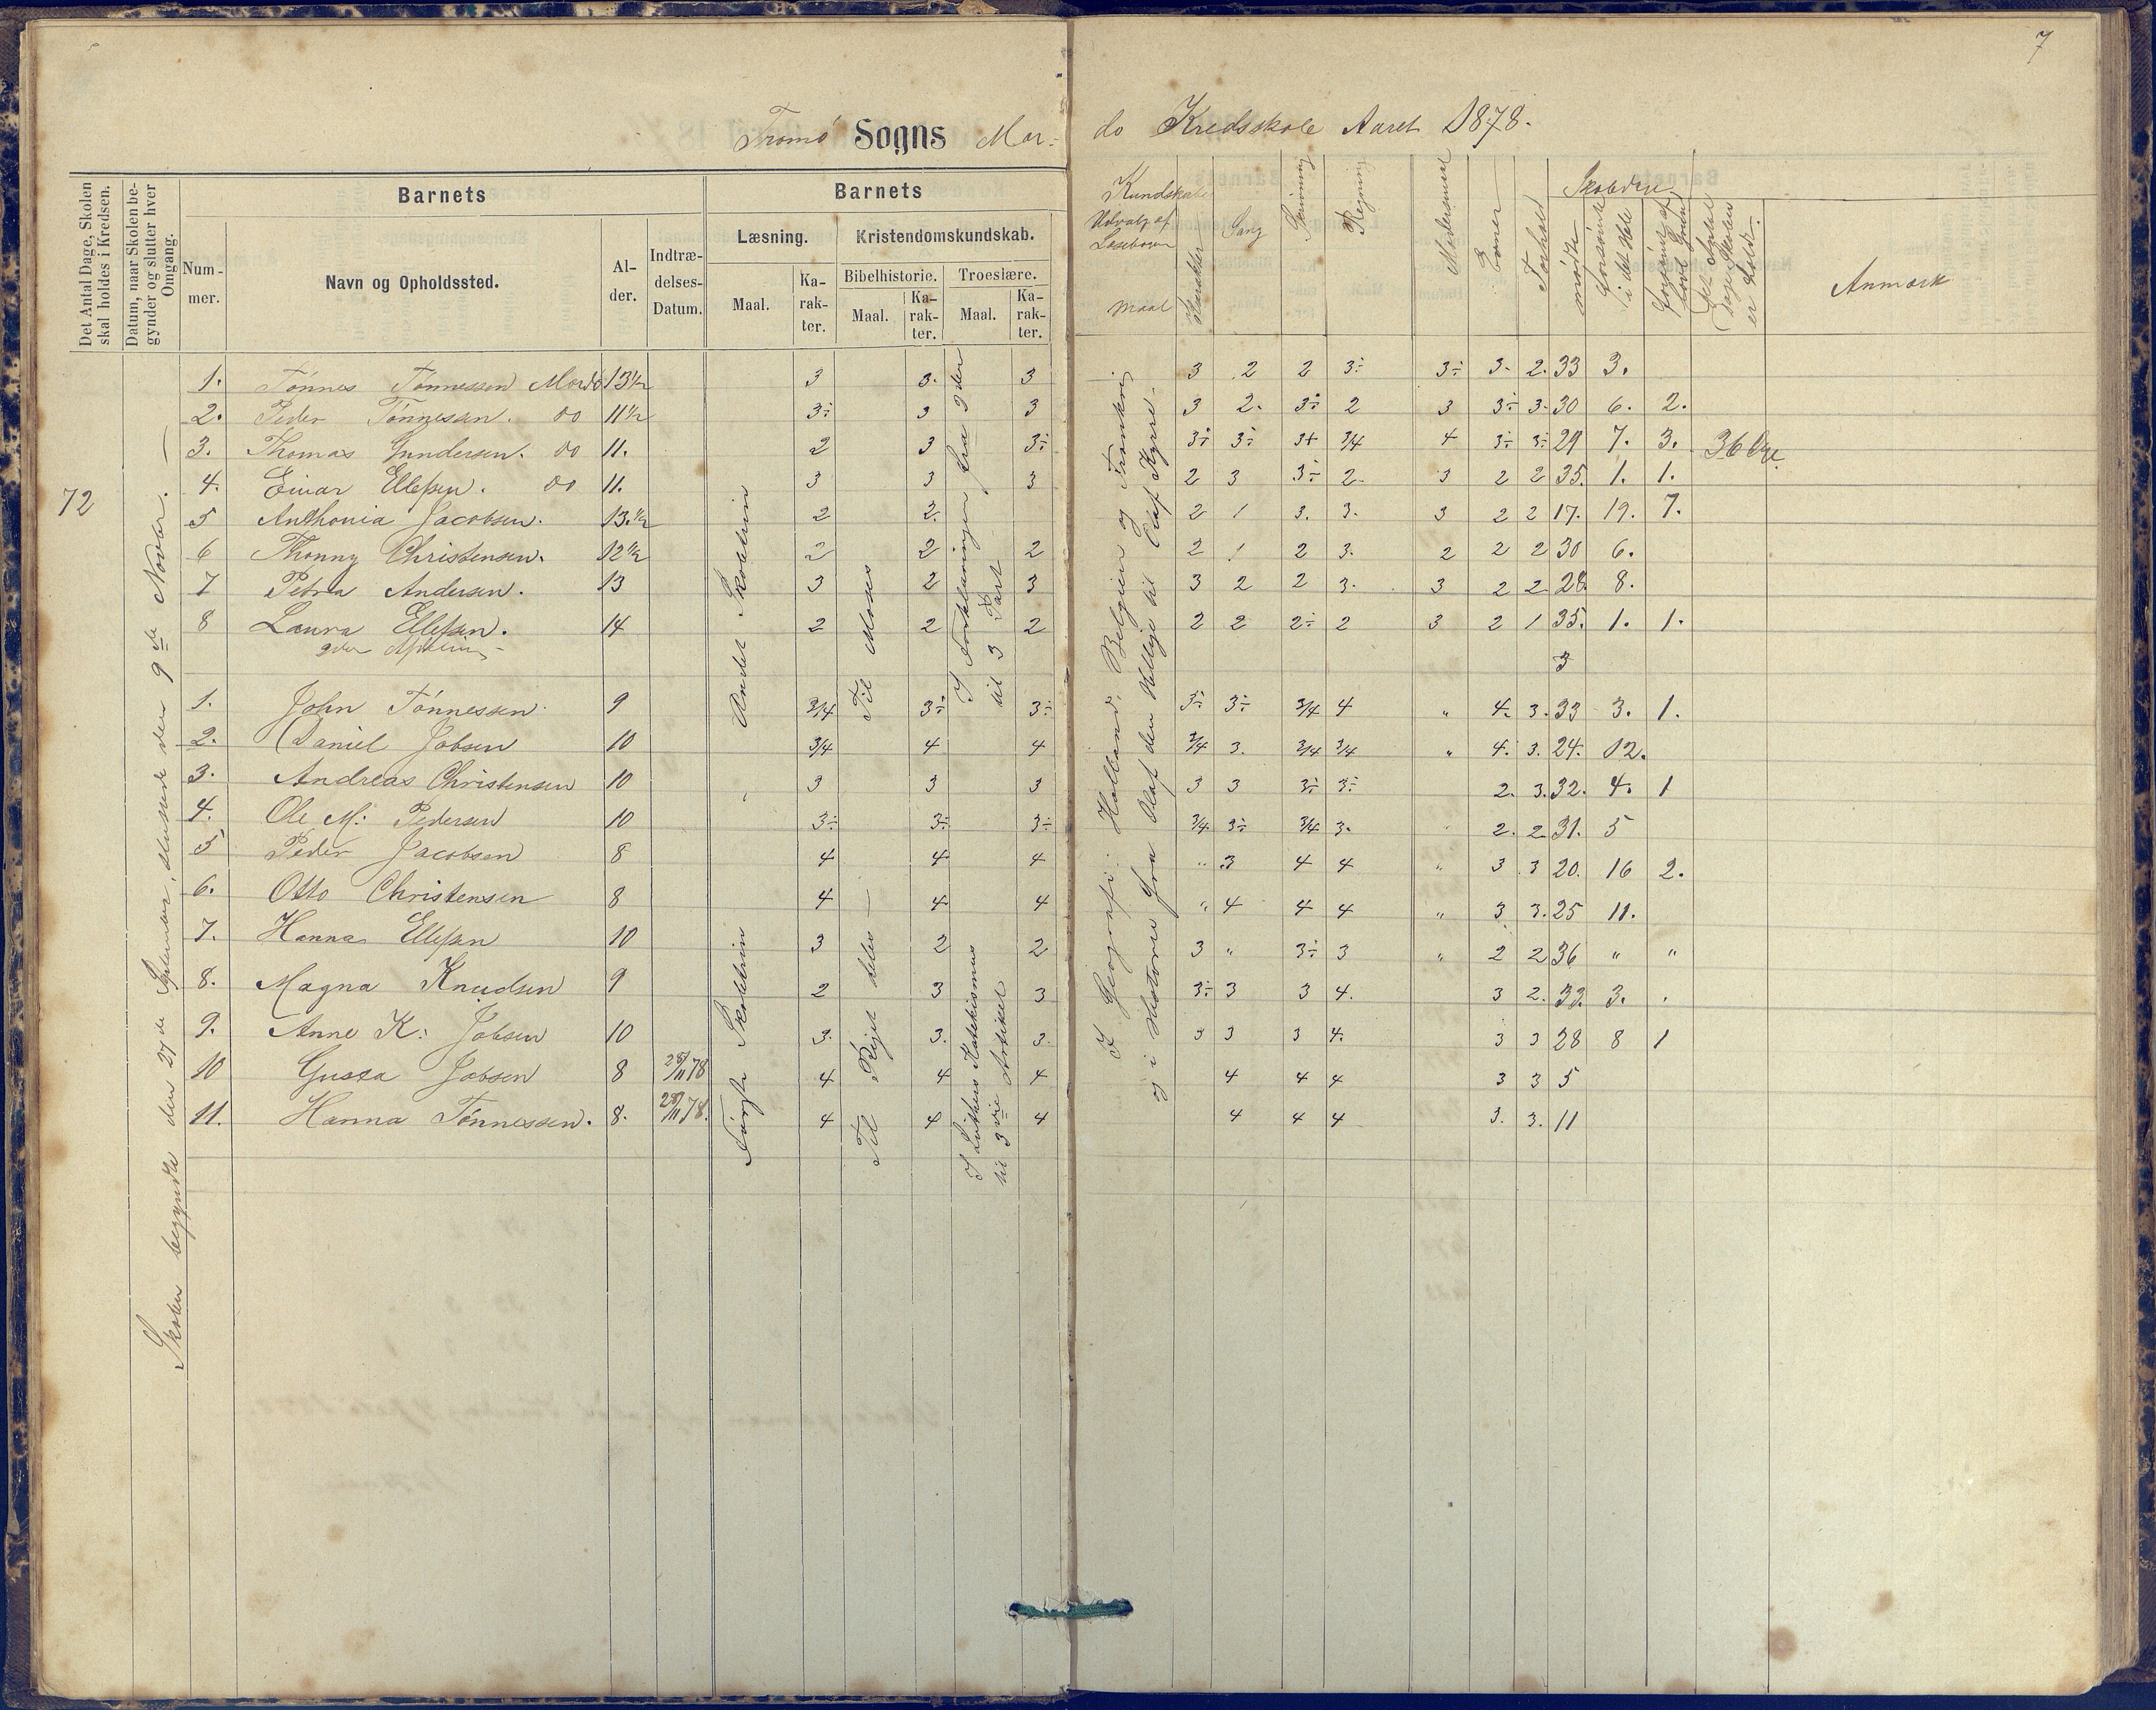 7
Tromö Sogns Mar-
do Kredsskole Aaret 1878.
Det Antal Dage, Skolen skal holdes i Kredsen.
Datum, naar Skolen begynder og slutter hver Omgang.
Barnets
Num-mer.
Navn og Opholdssted.
Al-der.
Indtræ-delses-Datum.
Barnets
Læsning.
Maal.
Ka-rak-ter.
Kristendomskundskab.
Bibelhistorie.
Maal.
Ka-rak-ter.
Troeslære.
Maal.
Ka-rak-ter.
Kundskaber
Udvalg af
Læsebogen
Maal
Karakter
Sang
Skrivning
Regning
Modersmaal
Evner
Forhold
Skoledage
mødte
forsømte i det Hele
forsømte af lovl. Grund
Det Antal Dage Skolen er holdt
Anmærk
72
Skolen begyndte den 27de September, sluttede den 9de Novbr.
Andet Skoletrin
Til Moses
I Forklaringen fra 2den til 3 Part
I Geografi: Holland, Belgien og Frankrig
og i Historie fra Olaf den Hellige til Olaf Kyrre
1. Tönnes Tönnessen Mardö 13½ 3 3. 3 3 2 2 3÷ 3÷ 3. 2. 33 3.
2. Peder Tönnessen. do 11½ 3÷ 3 3 3 2. 3÷ 2 3 3÷ 3. 30 6. 2.
3. Thomas Gundersen. do 11. 2 3 3÷ 3÷ 3÷ 3+ 3/4 4 3÷ 3÷ 29 7. 3. 36 Dge.
4. Einar Ellefsen. do 11. 3 3 3 2 3 3÷ 2. 3 2 2 35. 1. 1.
5 Anthonia Jacobsen. 13.½ 2 2. 2 1 3. 3. 3 2 2 17. 19. 7.
6 Thonny Christensen. 12½ 2 2 2 2 1 2 3. 2 2 2 30 6.
7 Petra Andersen. 13 3 2 3 3 2 2 3. 3 2 2. 28. 8.
8 Laura Ellefsen. 14 2 2 2 2 2 2÷ 2 3 2 1 35. 1. 1.
2den Afdeling
3
Første Skoletrin
Til Riget deles
I Luthers Katekismus til 3die Artikel
1. John Tönnessen 9 3/4 3÷ 3÷ 3÷ 3÷ 3/4 4 " 4. 3. 33 3. 1.
2. Daniel Jobsen 10 3/4 4 4 3/4 3. 3/4 3/4 " 4. 3. 24. 12.
3. Andreas Christensen 10 3 3 3 3 3 3÷ 3÷ 2. 3. 32. 4. 1
4. Ole M: Pedersen 10 3÷ 3÷ 3÷ 3/4 3÷ 3/4 3. 2. 2 31. 5
5 Peder Jacobsen 8 4 4 4 " 3 4 4 " 3 3 20. 16 2.
6. Otto Christensen 8 4 4 4 " 4 4 4 " 3 3. 25 11.
7. Hanna Ellefsen 10 3 2 2 3 " 3÷ 3 " 2 2 36 " "
8. Magna Knudsen 9 2 3 3 3÷ 3 3 4. 3 2. 33. 3.
9. Anne K: Jobsen 10 3. 3. 3. 3 3 3 4. 3 3 28 8 1
10 Gusta Jobsen 8 28/11 78 4 4 4 4 4 4 3 3 5
11. Hanna Tönnessen. 8. 28/11 78. 4 4 4 4 4 4 3. 3. 11